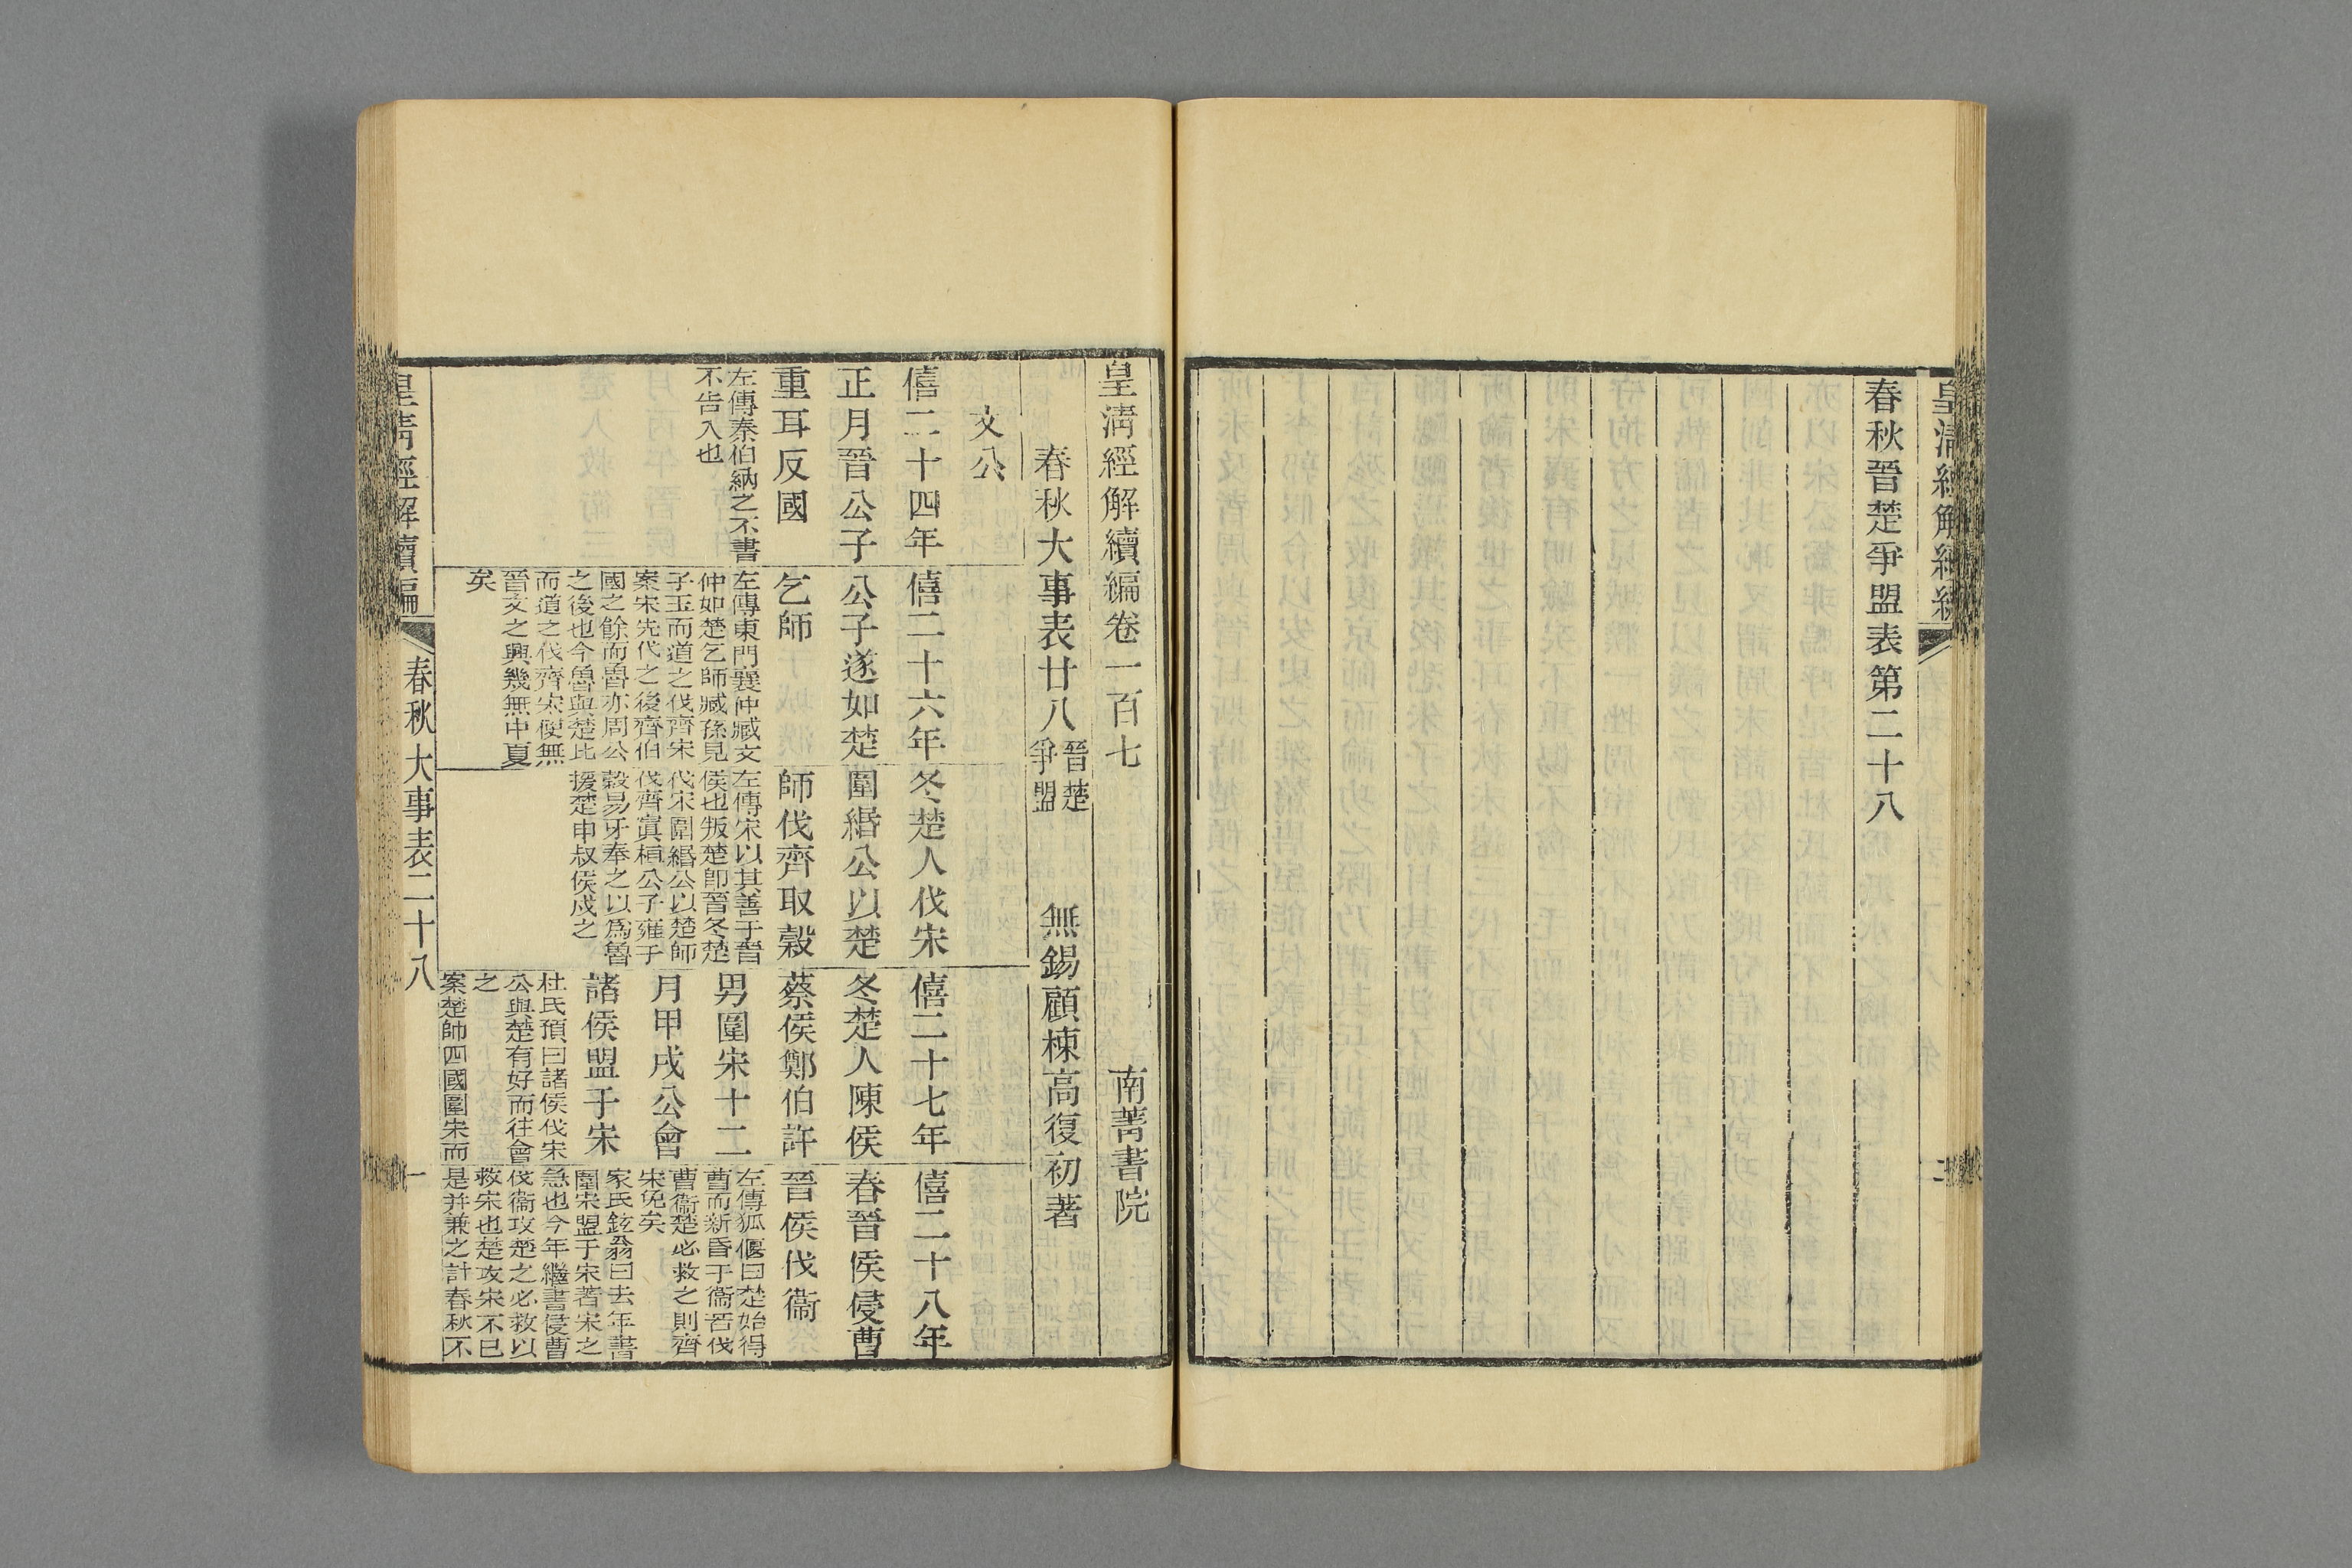 春秋晉楚爭盟表第二十八
皇清經解續編卷一百七
南菁書院
春秋大事表廿八
晉楚
爭盟
無錫顧棟高復初著
文公
僖二十四年
正月晉公子
重耳反國
左傳秦伯納之不書
不告入也
僖二十六年
公子遂如楚
乞師
左傳東門襄仲臧文
仲如楚乞師臧孫見
子玉而道之伐齊宋
案宋先代之後齊伯
國之餘而魯亦周公
之後也今魯與楚比
而道之伐齊宋使無
晉文之興幾無中夏
矣
冬楚人伐宋
圍緡公以楚
師伐齊取穀
左傳宋以其善于晉
侯也叛楚卽晉冬楚
伐宋圍緡公以楚師
伐齊寘桓公子雍于
穀易牙奉之以爲魯
援楚申叔侯戍之
僖二十七年
冬楚人陳侯
蔡侯鄭伯許
男圍宋十二
月甲戌公會
諸侯盟于宋
杜氏預曰諸侯伐宋
公與楚有好而往會
之
案楚帥四國圍宋而
僖二十八年
春晉侯侵曹
晉侯伐衞
左傳狐偃曰楚始得
曹而新昏于衞若伐
曹衞楚必救之則齊
宋免矣
家氏鉉翁曰去年書
圍宋盟于宋著宋之
急也今年繼書侵曹
伐衞攻楚之必救以
救宋也楚攻宋不已
是并兼之計春秋不
皇清經解續編
春秋大事表二十八
一